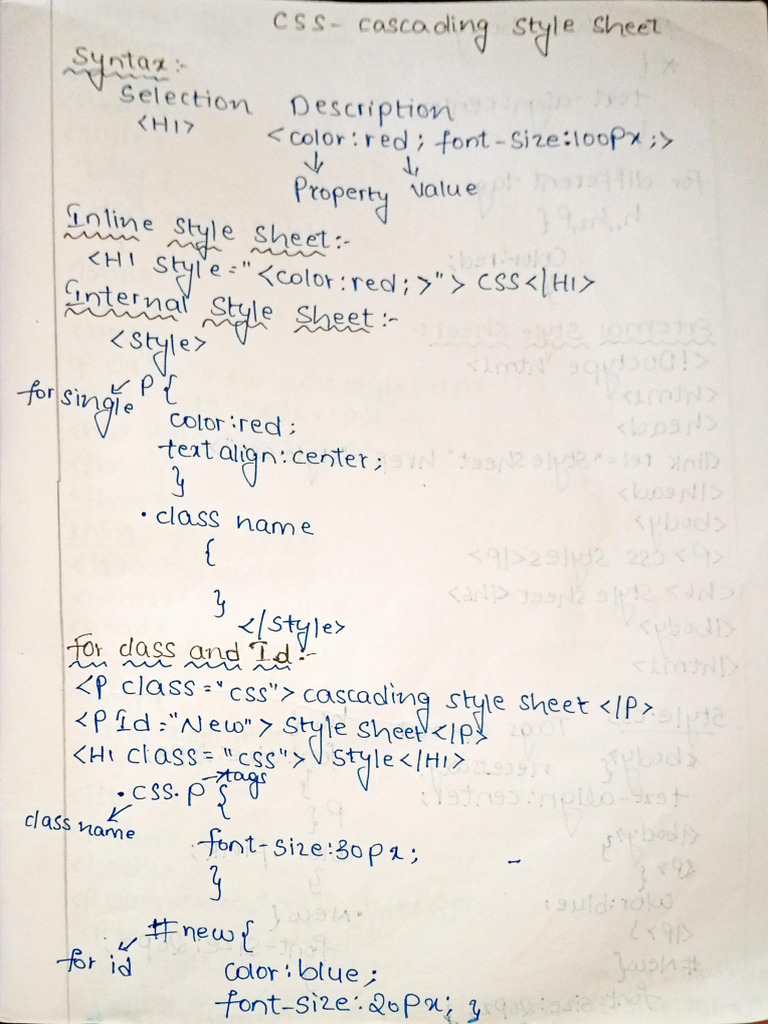 CSS- cascading style sheet
Syntax:-
Selection Description
<H1> <color:red; font-size:100px;>
Property value
Inline style sheet:-
<H1 style="<color:red;>"> CSS</H1>
Internal style sheet:-
<style>
for single P{
color:red;
text align:center;
}
.class name
{
}
</style>
for class and Id:-
<P class="css">cascading style sheet</P>
<P Id="New">Style sheet</P>
<H1 class="css">Style</H1>
.css.P{ →tags
class name
font-size:30px;
}
#new{
for id
color:blue;
font-size:20px; }